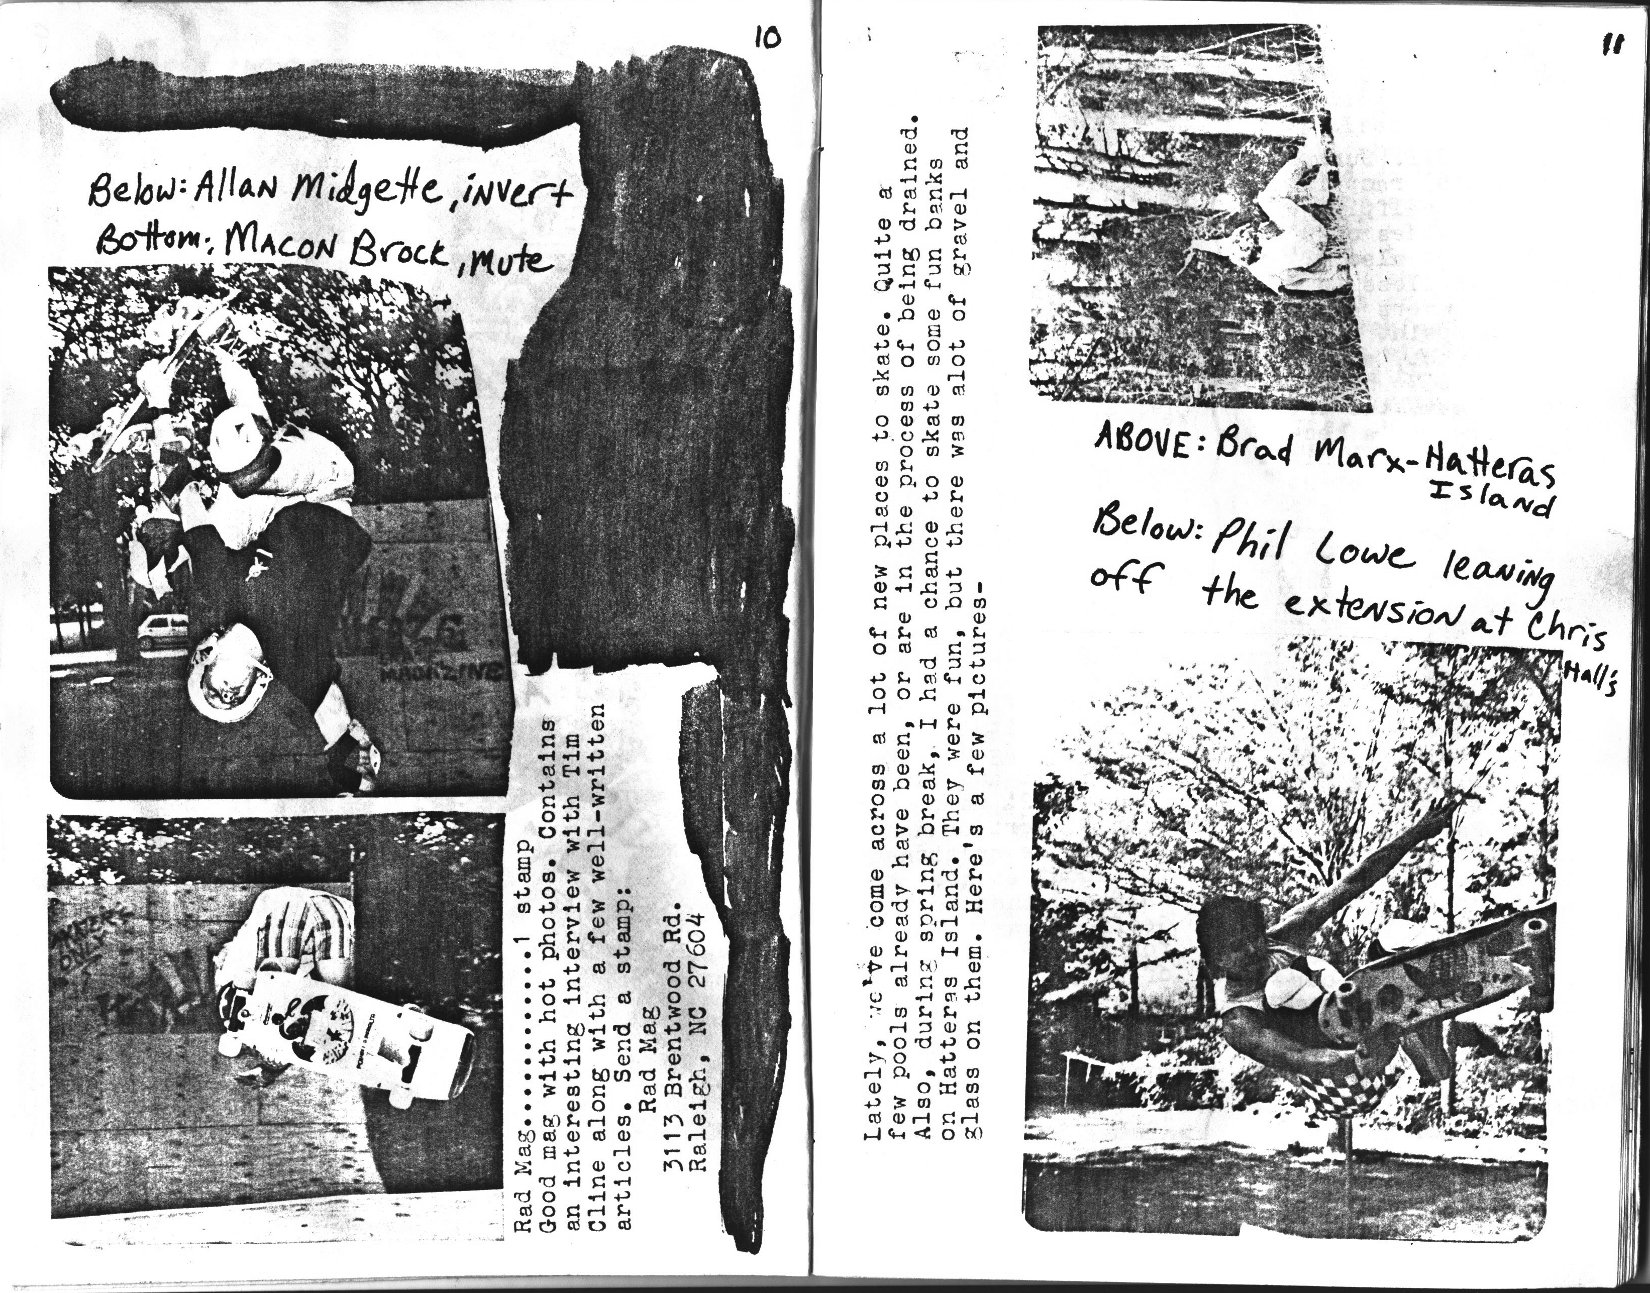 10
Below: Allan Midgette, invert
Bottom: Macon Brock, mute
MAGAZINE
SKATERS
ONLY
Rad Mag............1 stamp
Good mag with hot photos. Contains
an interesting interview with Tim
Cline along with a few well-written
articles. Send a stamp:
Rad Mag
3113 Brentwood Rd.
Raleigh, NC 27604
11
Lately, we've come across a lot of new places to skate. Quite a
few pools already have been, or are in the process of being drained.
Also, during spring break, I had a chance to skate some fun banks
on Hatteras Island. They were fun, but there was alot of gravel and
glass on them. Here's a few pictures-
ABOVE: Brad Marx-Hatteras
Island
Below: Phil Lowe leaning
off the extension at Chris
Hall's